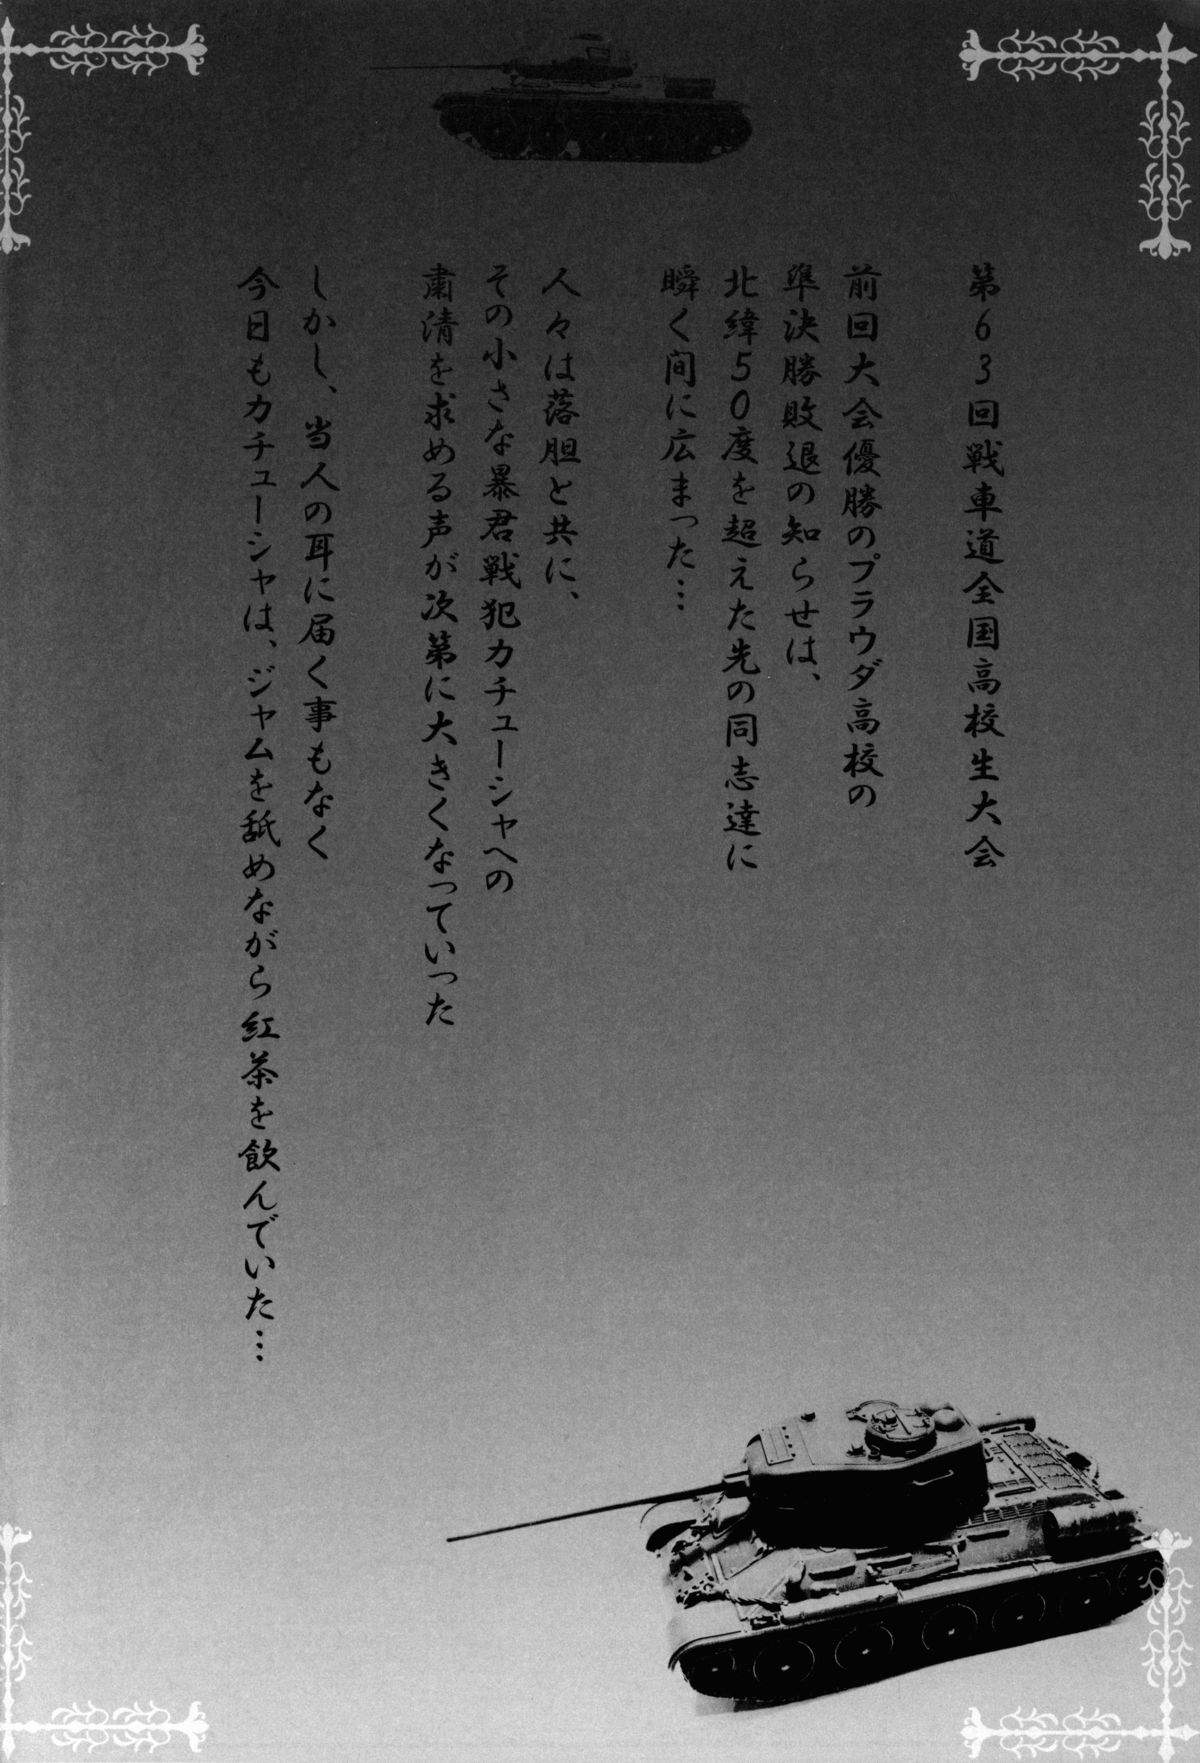 第63回戦車道全国高校生大会
前回大会優勝のプラウダ高校の
準決勝敗退の知らせは、
北緯50度を超えた先の同志達に
瞬く間に広まった…
人々は落胆と共に、
その小さな暴君戦犯カチューシャへの
粛清を求める声が次第に大きくなっていった
しかし、当人の耳に届く事もなく
今日もカチューシャは、ジャムを舐めながら紅茶を飲んでいた…